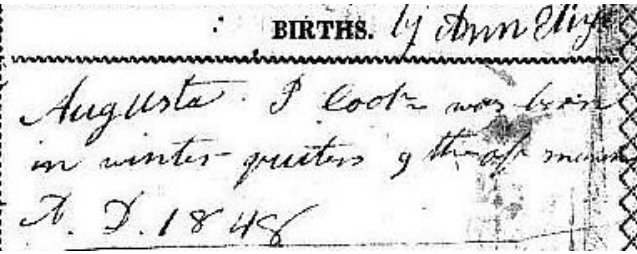 BIRTHS. by Ann Eliza
Augusta. P Cook was born
in winter quiters 9 th of
A. D. 1848